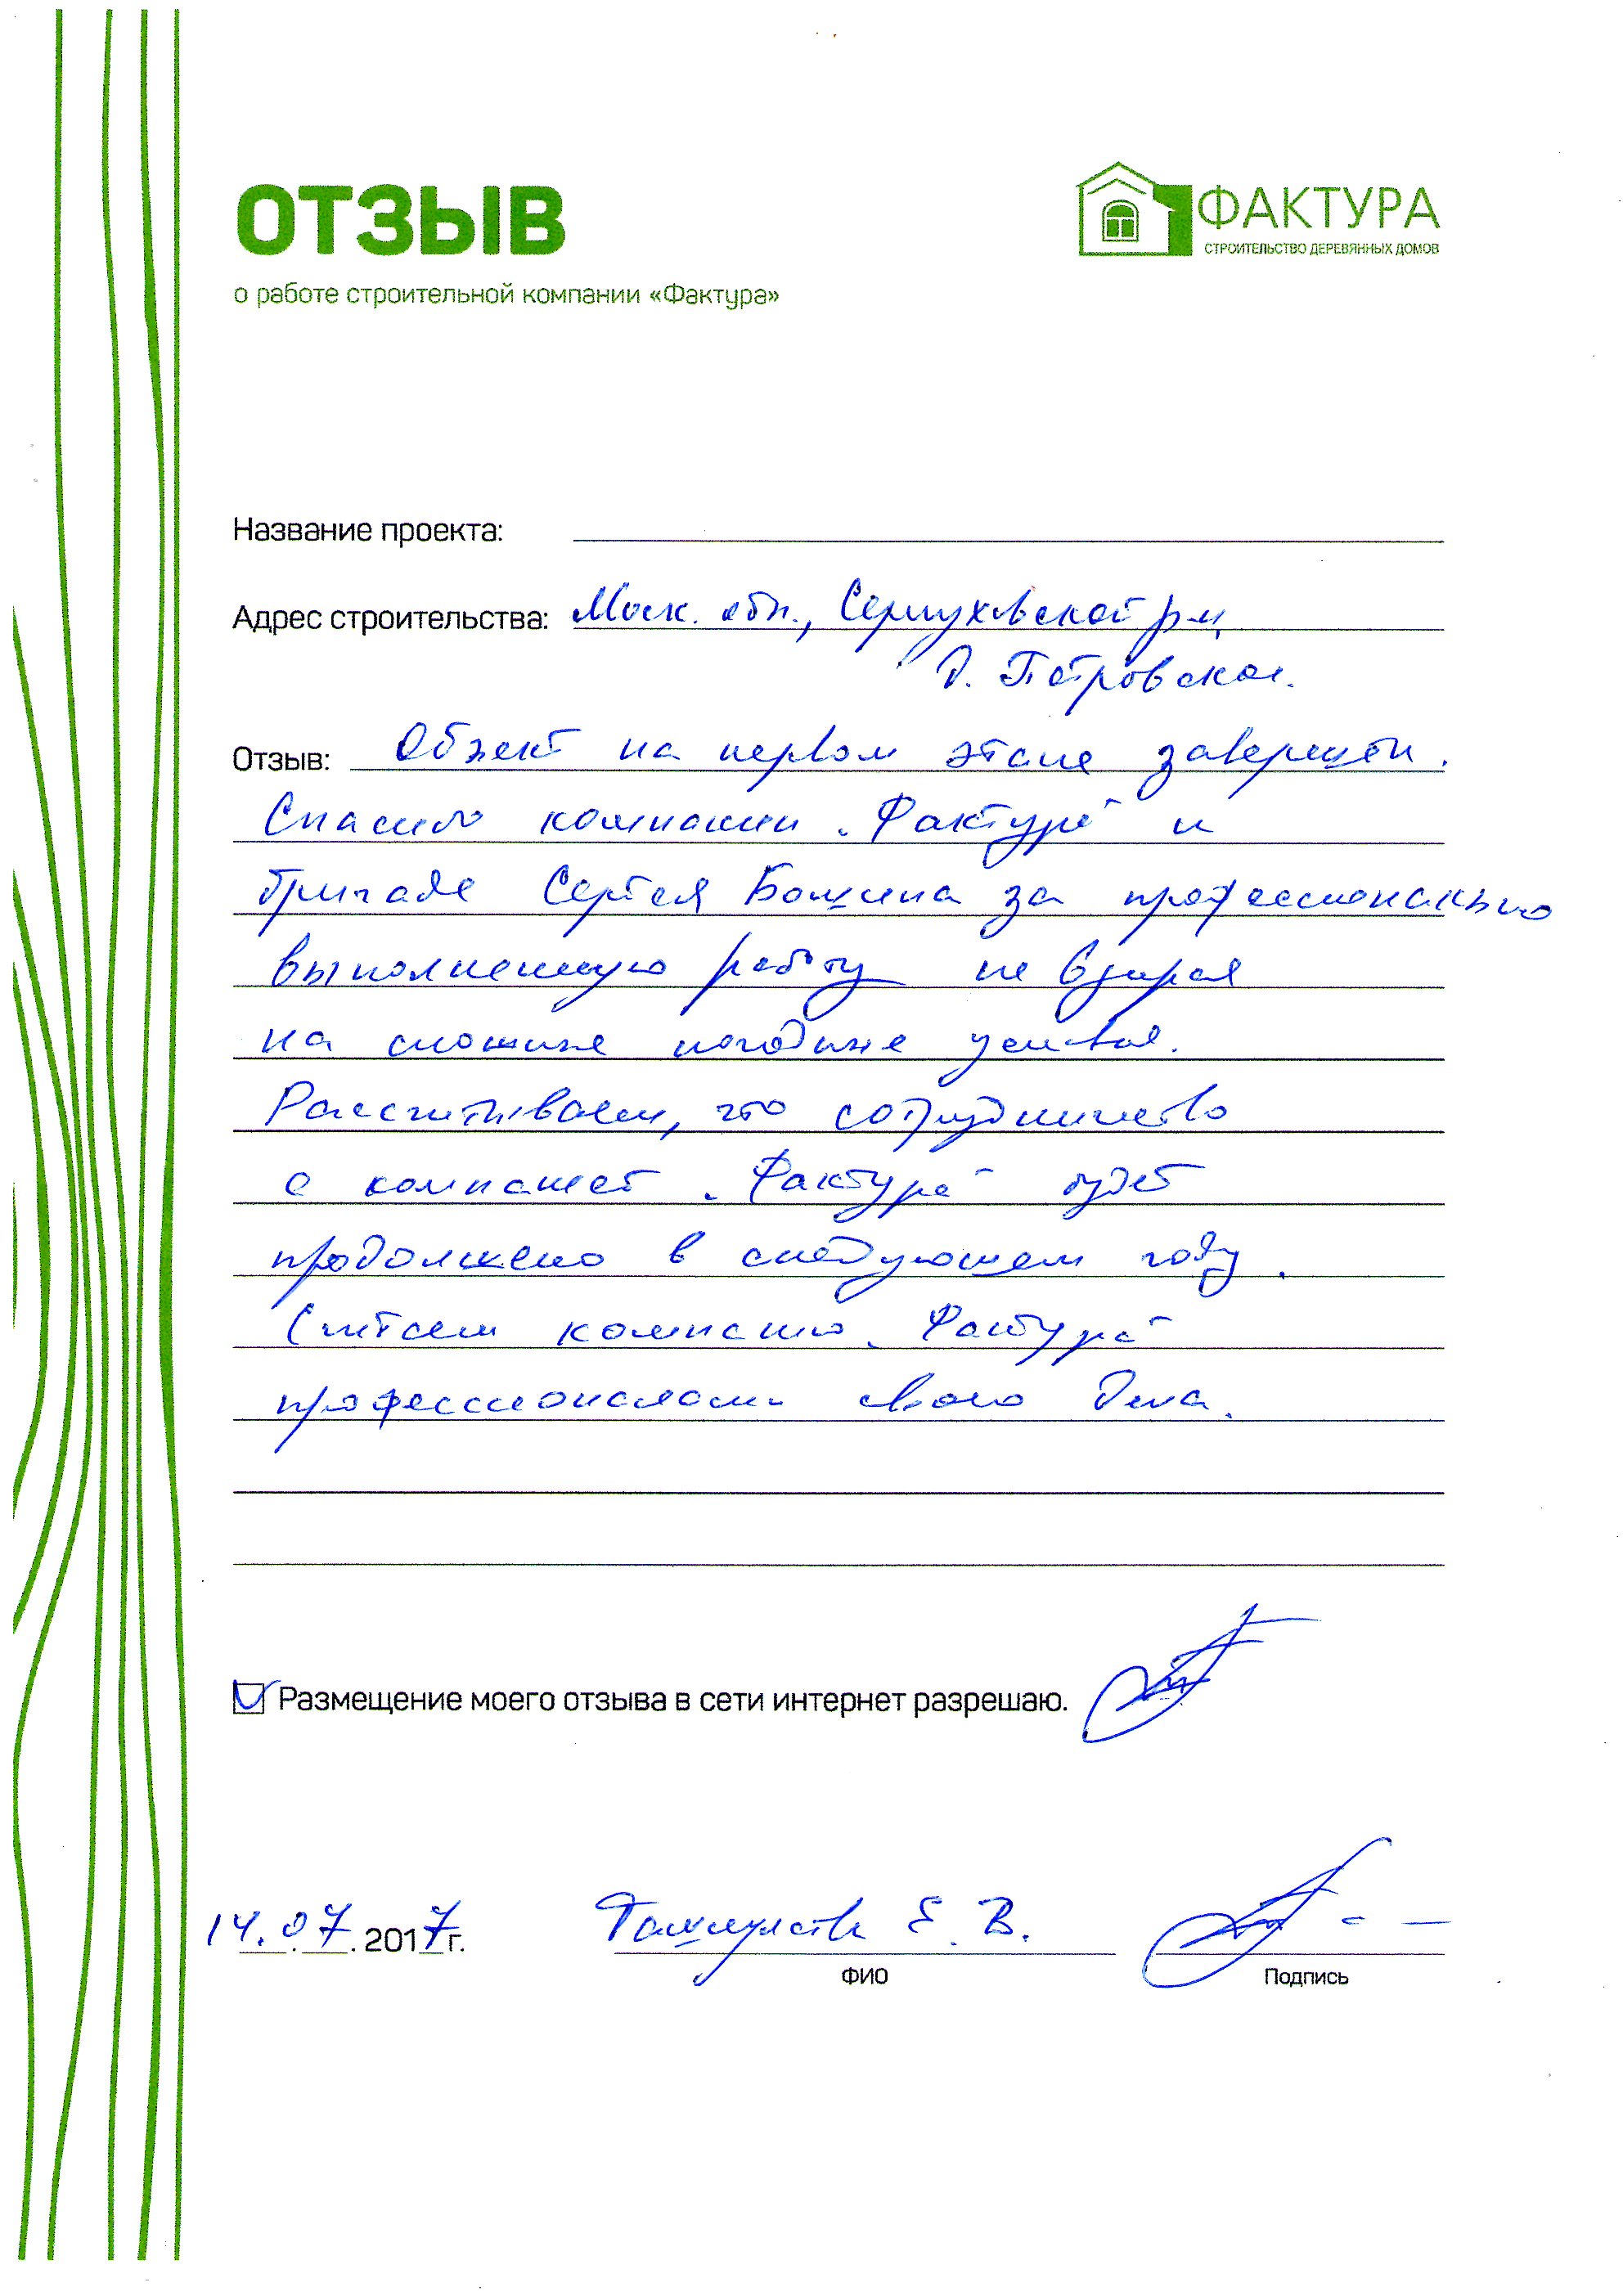 ОТЗЫВ
ФАКТУРА
СТРОИТЕЛЬСТВО ДЕРЕВЯННЫХ ДОМОВ
о работе строительной компании «Фактура»
Название проекта:
Адрес строительства: Моск. обл., Серпуховской р-н
д. Петровское.
Отзыв: Объект на первом этапе завершен.
Спасибо компании „Фактура“ и
бригаде Сергея за профессионально
выполненную работу не взирая
на сложные погодные условия.
Рассчитываем, что сотрудничество
с компанией „Фактура“ будет
продолжено в следующем году.
Считаем компанию „Фактура“
профессионалами своего дела.
Размещение моего отзыва в сети интернет разрешаю.
14.07.2017г. Е. В.
ФИО Подпись